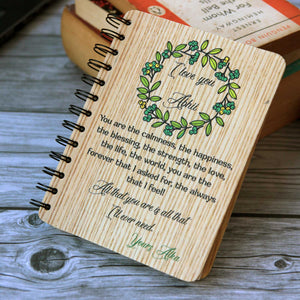 For Whom the
Bell
HEMINGWAY
I love you
Ashu
You are the calmness, the happiness,
the blessing, the strength, the love,
the life, the world, you are the
forever that I asked for, the always
that I feel!
All that you are is all that
I'll ever need.
Yours, Alia